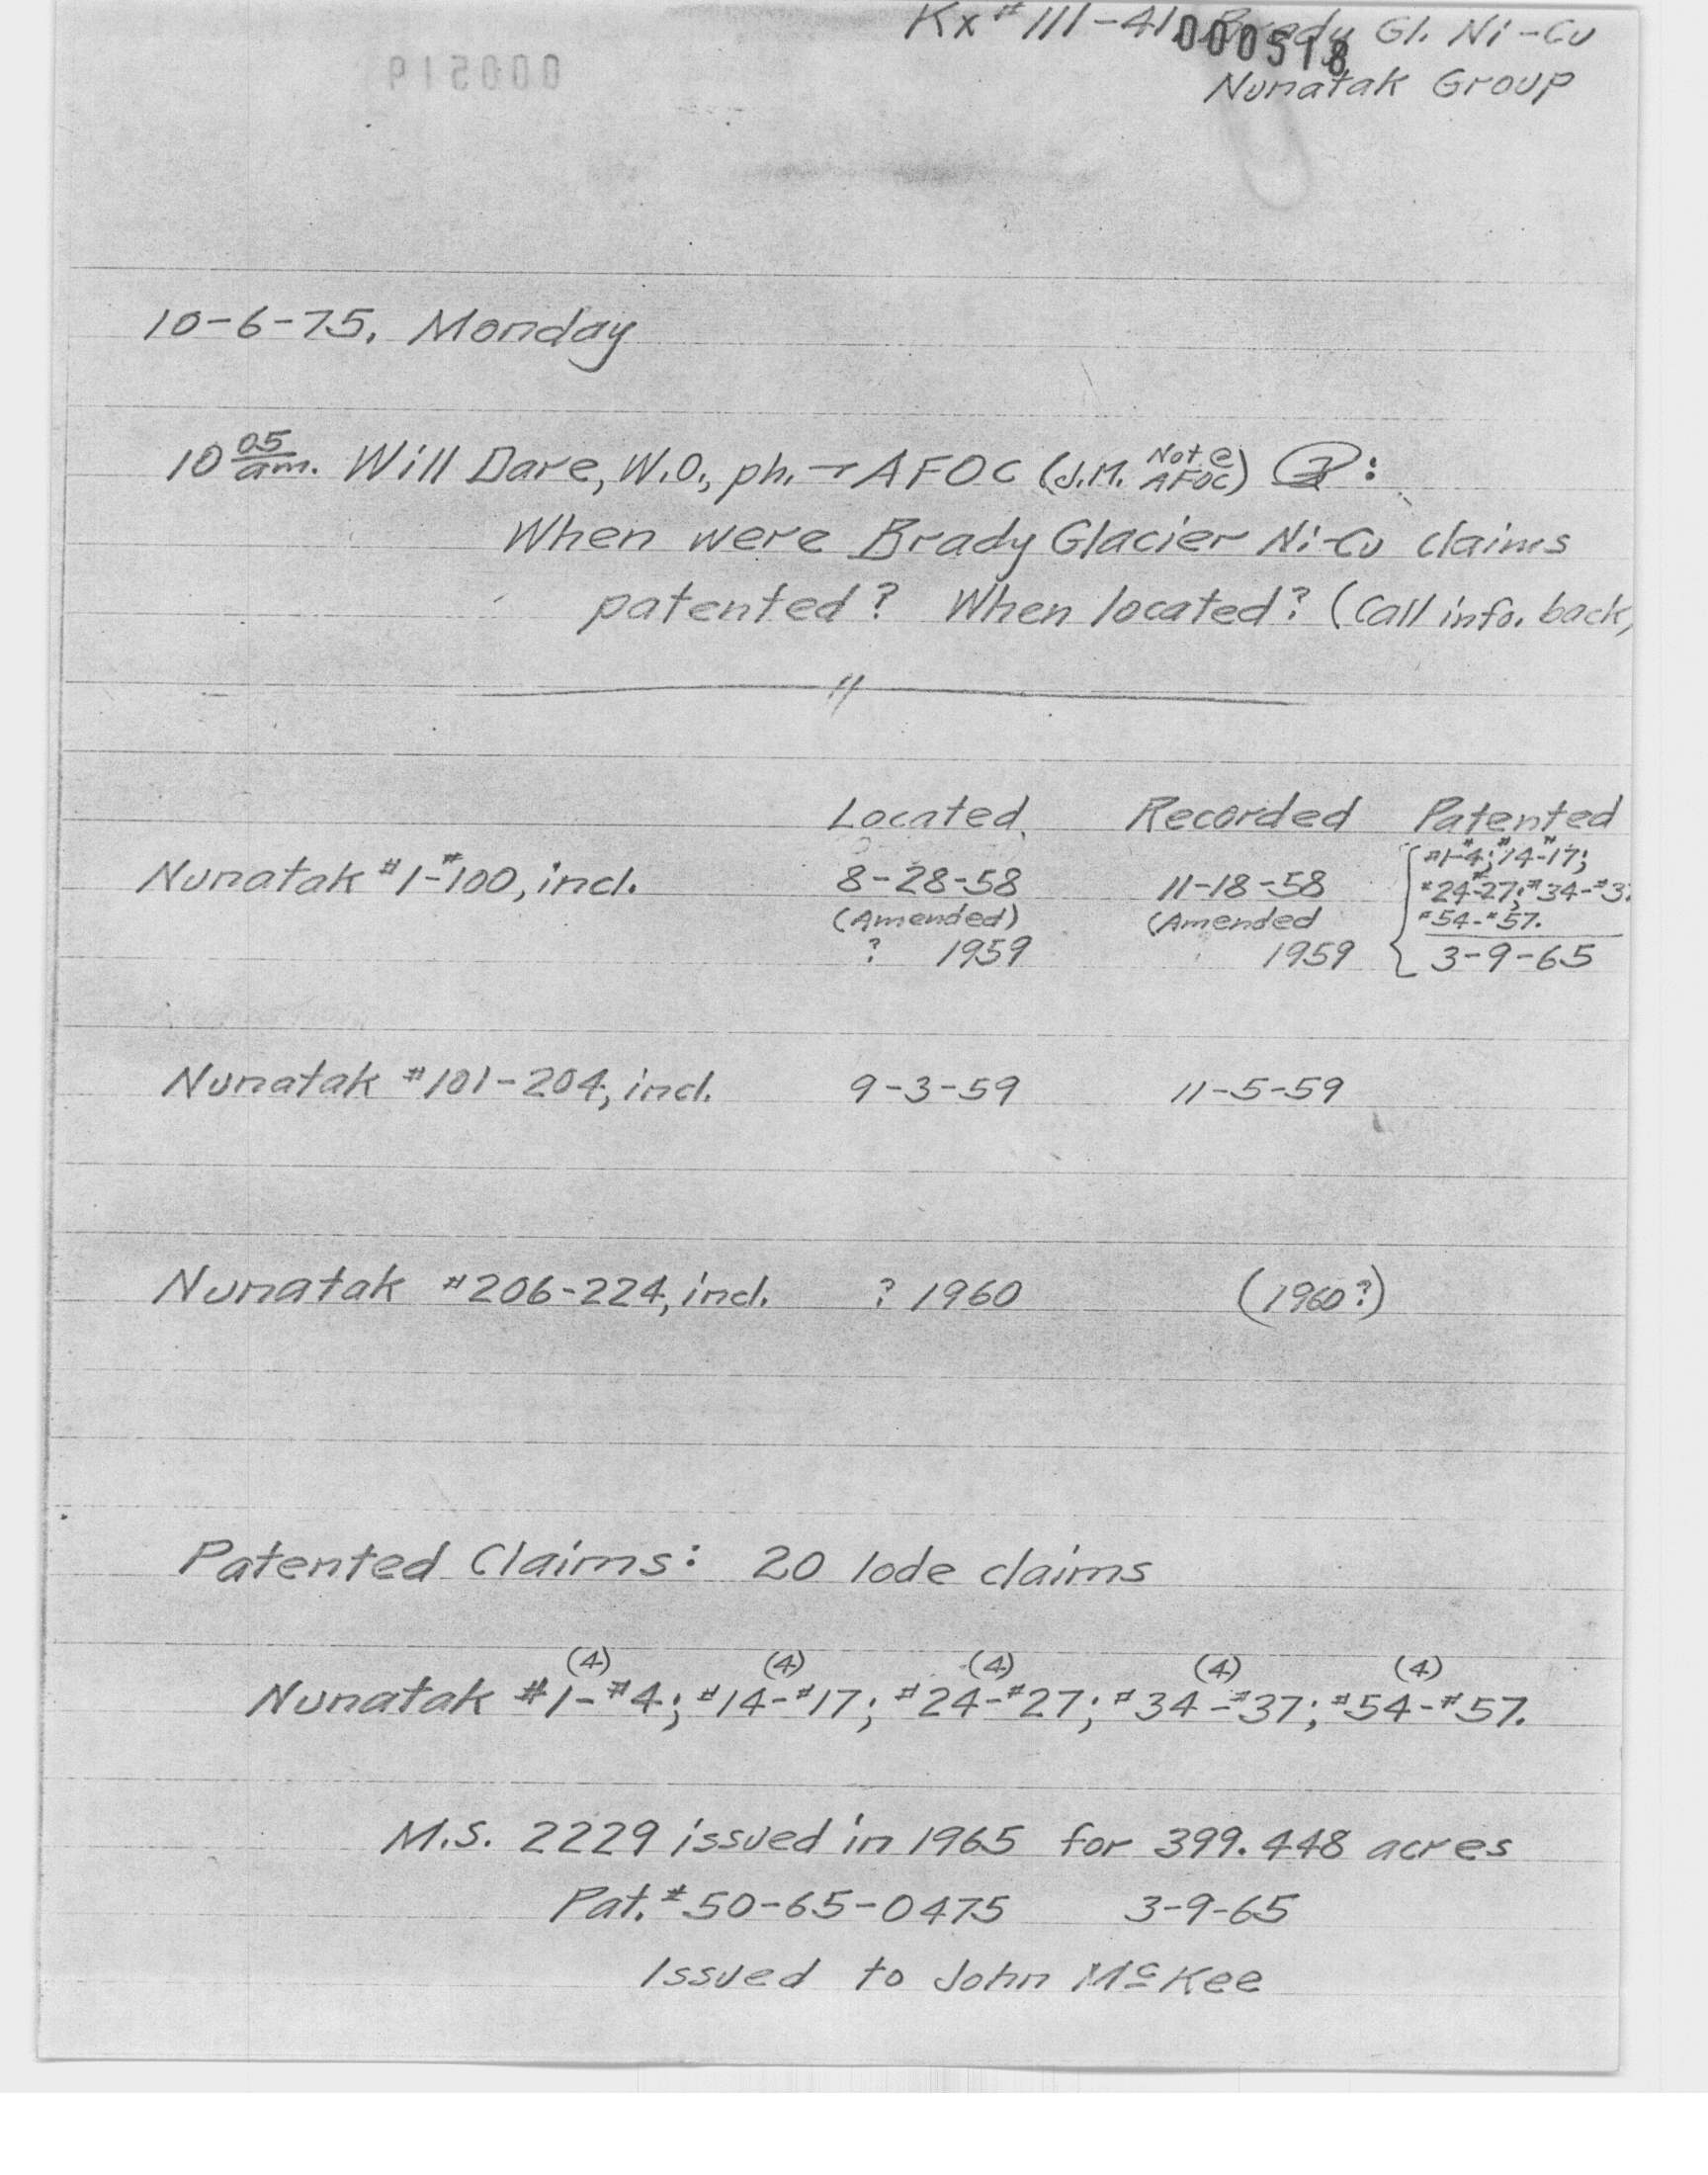 Kx #111-41 Brady Gl. Ni-Cu
000518
000519
Nunatak Group
10-6-75, Monday
10 05 am. Will Dare, W.O., ph. → AFOC (J.M. Note AFOC) :
When were Brady Glacier Ni-Cu claims
patented? When located? (Call info. back,
Located Recorded Patented
Nunatak #1-#100, incl. 8-28-58 11-18-58 #1-#4; #14-17;
#24-27; #34-#3
(Amended) (Amended #54-#57.
? 1959 1959 3-9-65
Nunatak #101-204, incl. 9-3-59 11-5-59
Nunatak #206-224, incl. ? 1960 (1960?)
Patented Claims: 20 lode claims
(4) (4) (4) (4) (4)
Nunatak #1-#4; #14-#17; #24-#27; #34-#37; #54-#57.
M.S. 2229 issued in 1965 for 399.448 acres
Pat. #50-65-0475 3-9-65
Issued to John McKee